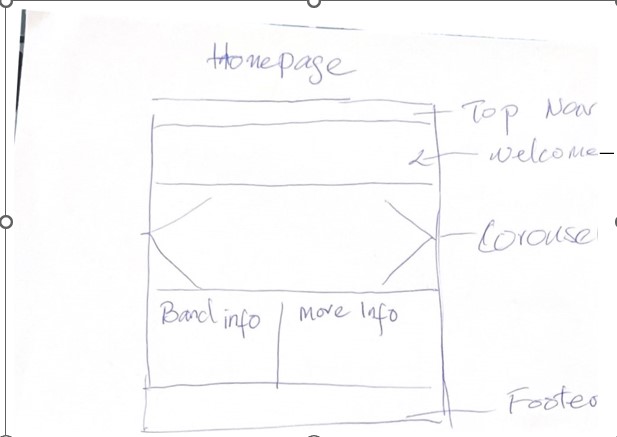 Homepage
Top Nav
Welcome
Carouse
Band info
More Info
Foote